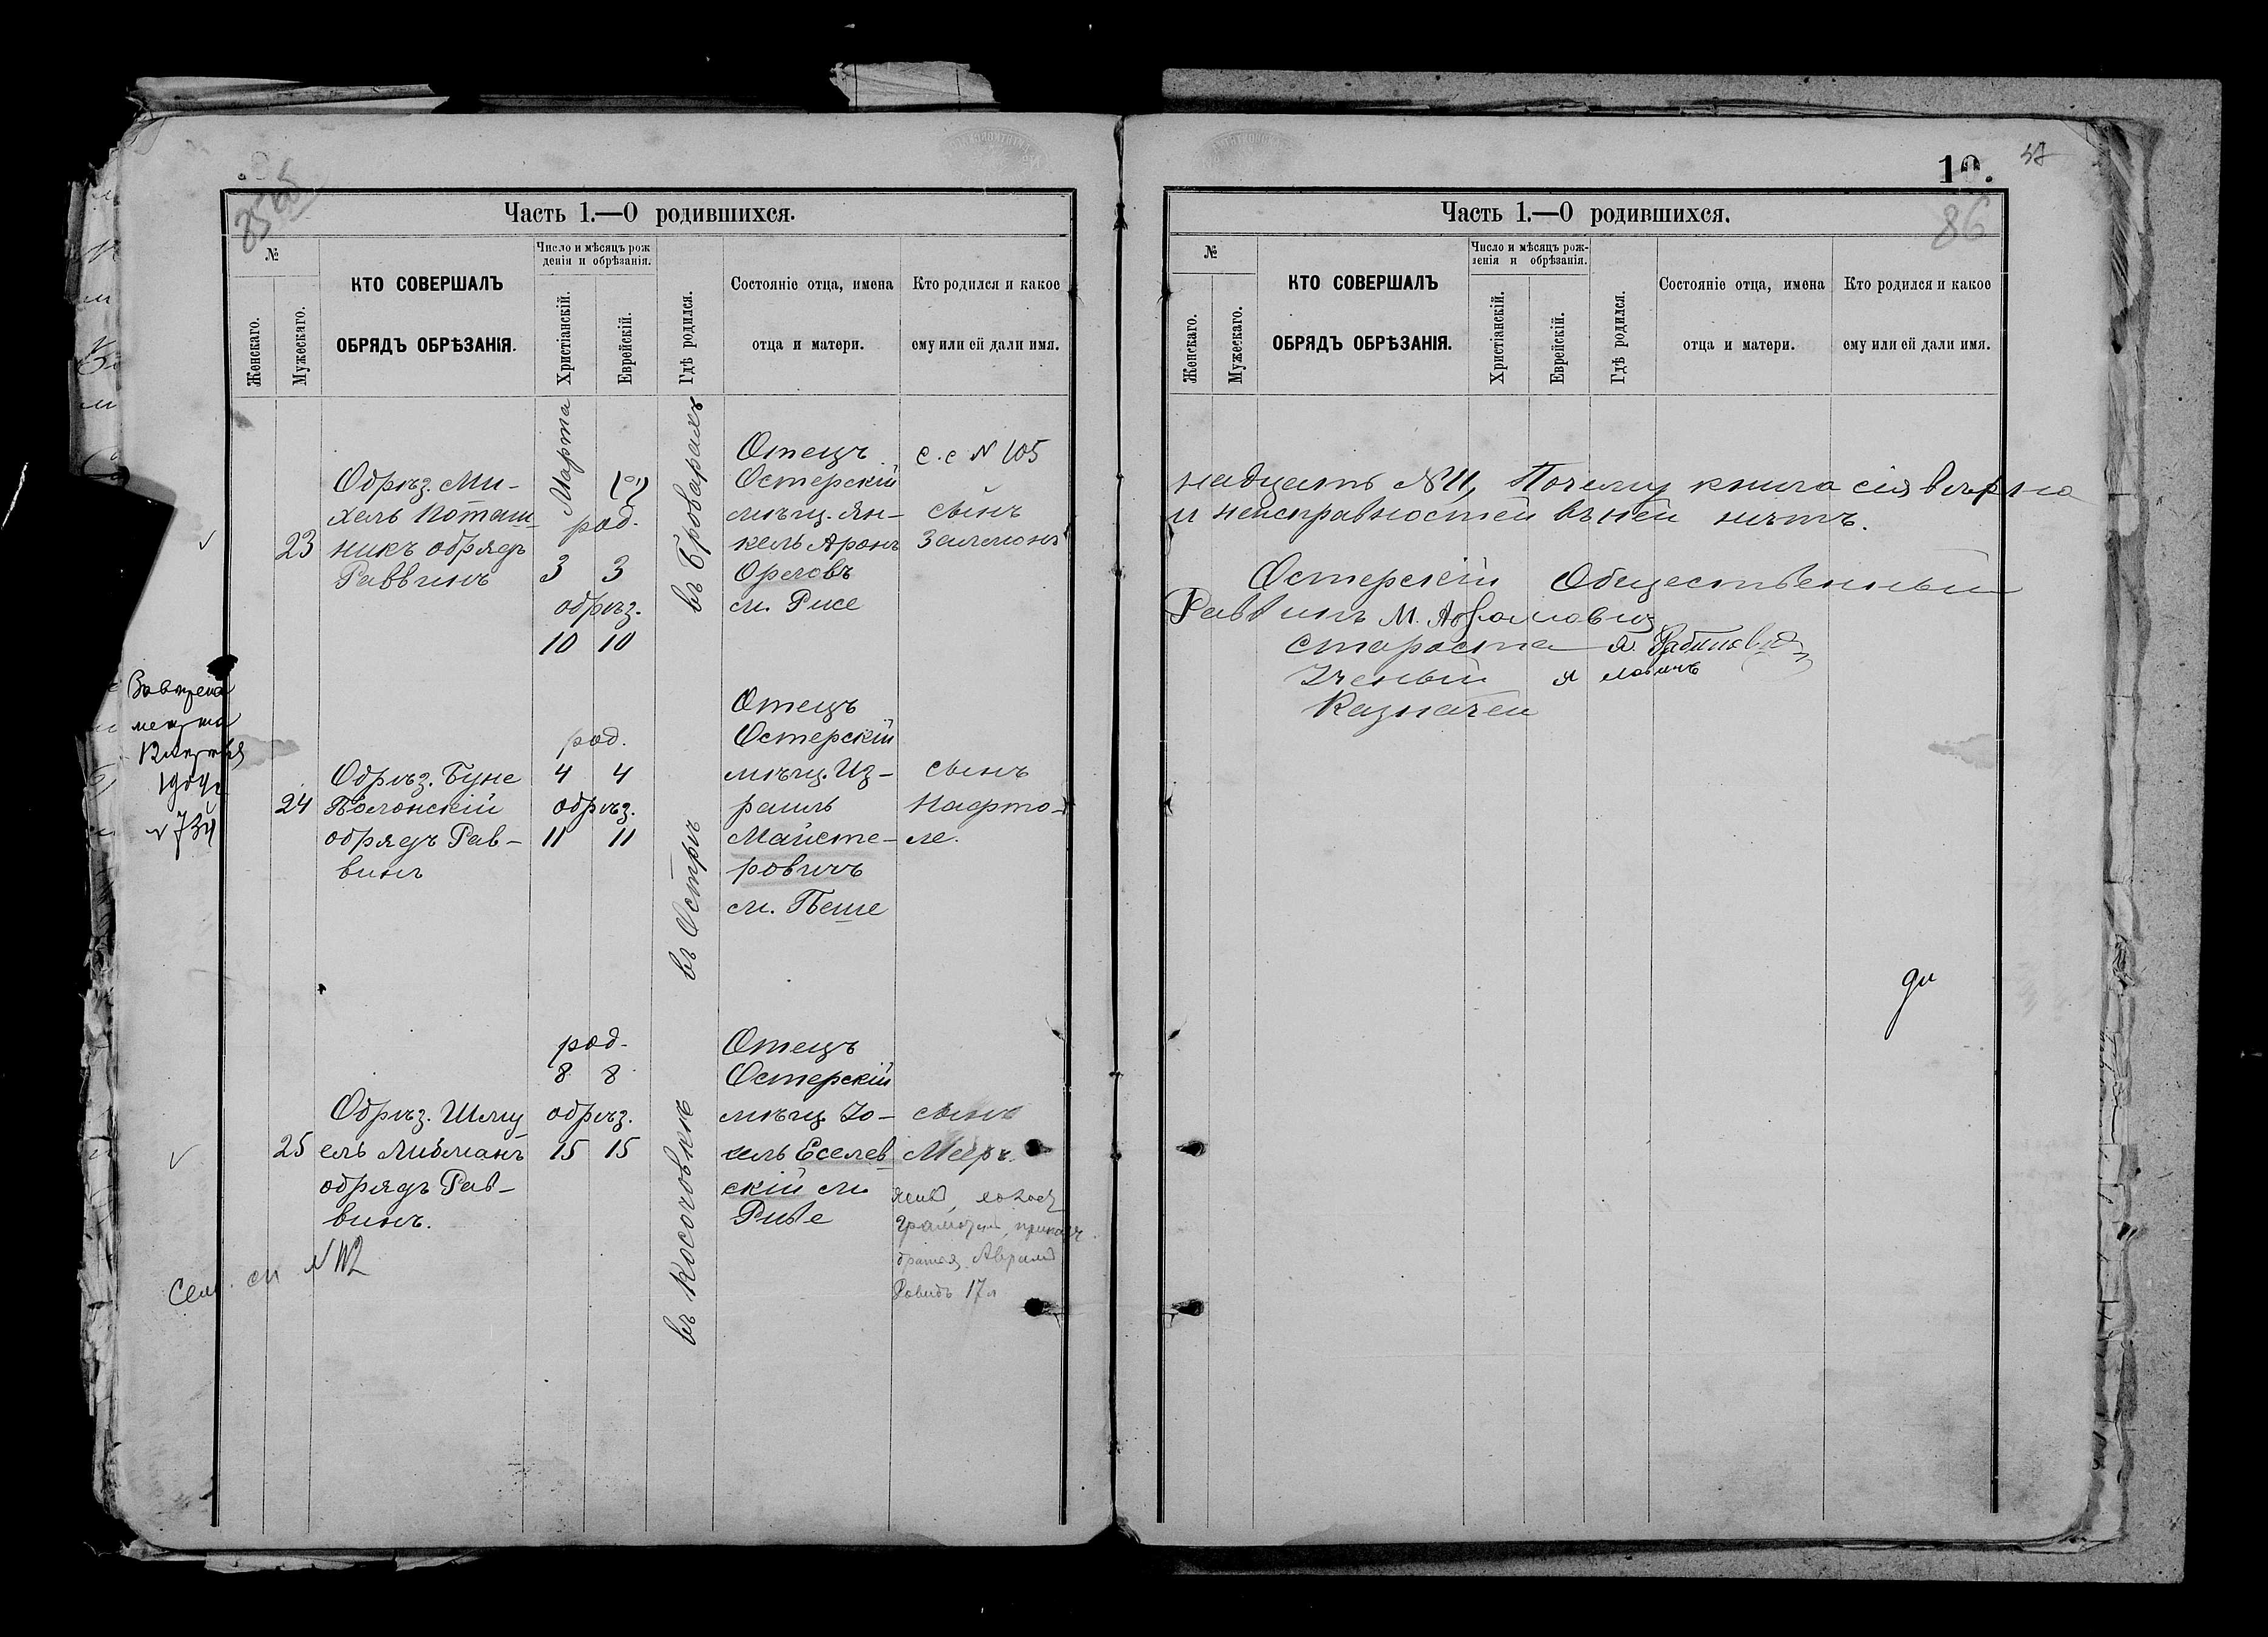 85
Часть 1.—О родившихся.
№
Женскаго.
Мужескаго.
КТО СОВЕРШАЛЪ
ОБРЯДЪ ОБРѢЗАНІЯ.
Число и мѣсяцъ рож
денія и обрѣзанія.
Христіанскій.
Еврейскій.
Гдѣ родился.
Состояніе отца, имена
отца и матери.
Кто родился и какое
ему или ей дали имя.
23
Обрѣз. Ми-
хель Поташ
никъ обрядъ
Раввинъ
Марта
род.
3 3
обрѣз.
10 10
въ Броварахъ
Отецъ
Остерскій
мѣщ. Ян-
кель Аронъ
Ореховъ
м. Рисе
с.с N 105
сынъ
Залмонъ
метка
1904
N 734
24
Обрѣз. Буне
Полонскій
обрядъ Рав-
винъ
род.
4 4
обрѣз.
11 11
въ Острѣ
Отецъ
Остерскій
мѣщ. Из-
раиль
Майсте-
ровичъ
м. Пеше
сынъ
Нафто-
ле.
25
Обрѣз. Шму
ель Либманъ
обрядъ Рав-
винъ.
род.
8 8
обрѣз.
15 15
въ Косочовкѣ
Отецъ
Остерскій
мѣщ. Іо-
сель Еселев
скій м.
Риве
сынъ
Мееръ.
братъя Аврамъ
Довидъ 17л
Сем. сп N 112
10.
86
Часть 1.—О родившихся.
№
Женскаго.
Мужескаго.
КТО СОВЕРШАЛЪ
ОБРЯДЪ ОБРѢЗАНІЯ.
Число и мѣсяцъ рож-
денія и обрѣзанія.
Христіанскій.
Еврейскій.
Гдѣ родился.
Состояніе отца, имена
отца и матери.
Кто родился и какое
ему или ей дали имя.
надцать N 11, Почему книга сія вѣрна
и неисправностей въ ней нѣтъ.
Остерскій Общественный
Раввинъ М. Абрамович
староста Рабинович
Ученый
Казначей